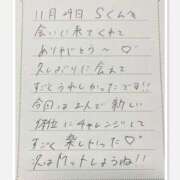 11月29日 Sくんを
会いに来てくれて
ありがとう〜♡
久しぶりに会えて
すごくうれしかったです!!
今回は2人で新しい
体位にチャレンジして
すごく楽しかった♡
次はゲットしようね!!